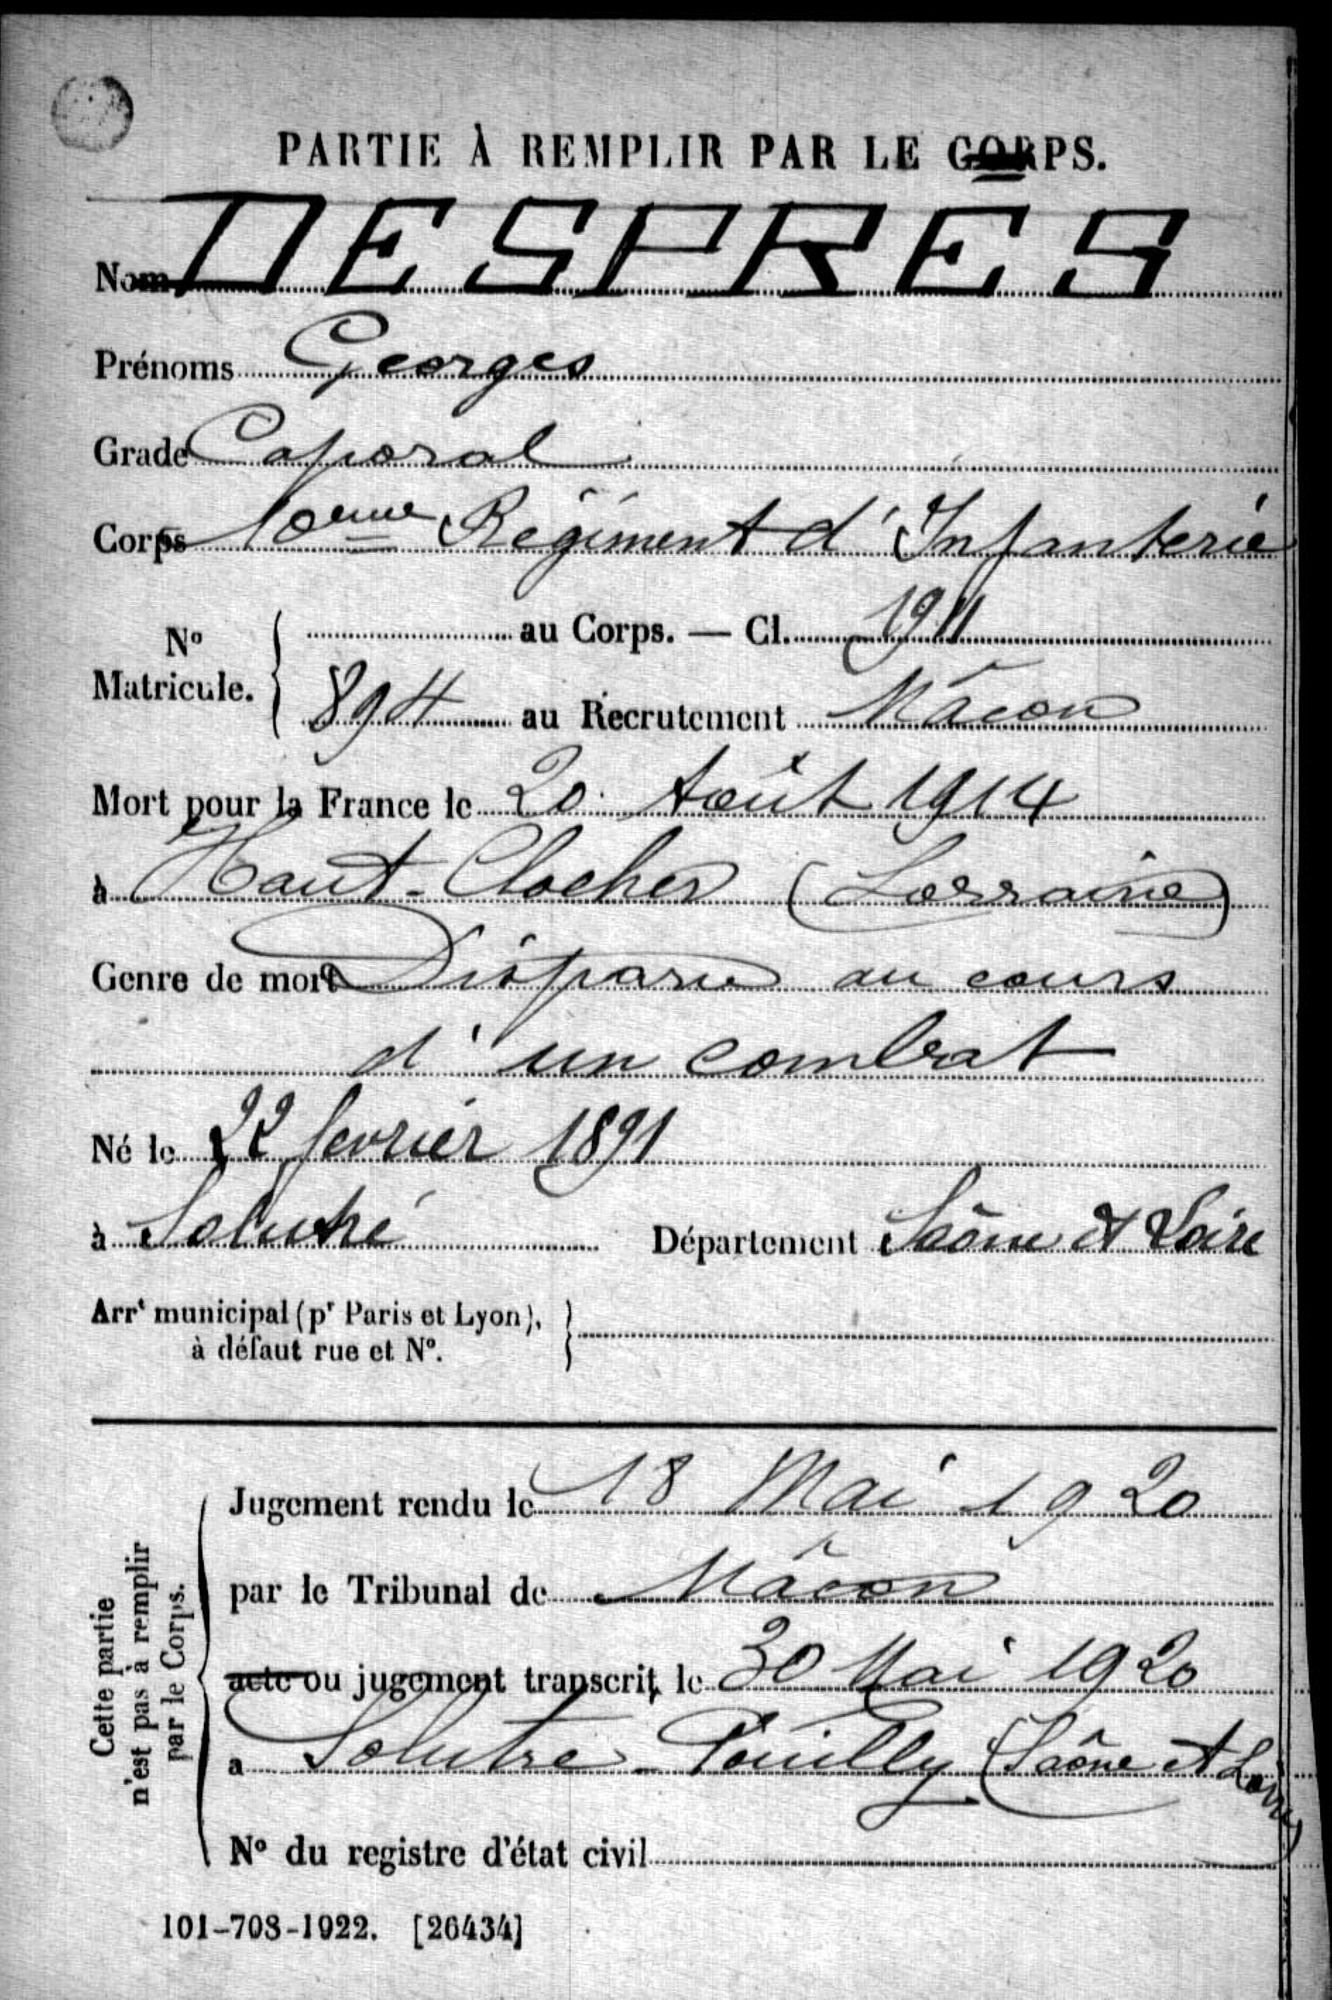 PARTIE À REMPLIR PAR LE CORPS.
Nom DESPRÉS
Prénoms Georges
Grade Caporal
Corps 10eme Régiment d'Infanterie
N° Matricule. { au Corps. — Cl. 1911
894 au Recrutement Mâcon
Mort pour la France le 20 Août 1914
à Haut-Clocher (Lorraine)
Genre de mort Disparu au cours
d'un combat
Né le 22 fevrier 1891
à Solutré Département Saône et Loire
Arrt municipal (pr Paris et Lyon), }
à défaut rue et N°.
Cette partie
n'est pas à remplir
par le Corps.
Jugement rendu le 18 Mai 1920
par le Tribunal de Mâcon
acte ou jugement transcrit le 30 Mai 1920
à Solutre-Pouilly (Saône et Loire)
N° du registre d'état civil
101-708-1922. [26434]